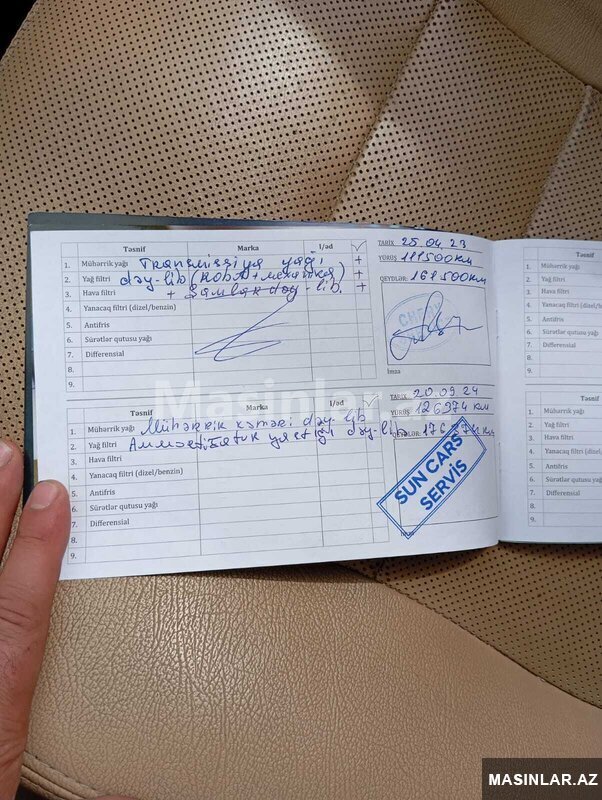 Təsnif Marka İ/əd ✓ TARİX 25.04.23
1. Mühərrik yağı Transmissiya yağı + YÜRÜŞ 111500 KM
2. Yağ filtri dəy-lib (робот+механика) + QEYDLƏR: 161500 KM
3. Hava filtri + Şamlar dəy-lib. +
4. Yanacaq filtri (dizel/benzin)
5. Antifris
6. Sürətlər qutusu yağı
7. Differensial
8.
9.
İmza
Təsnif Marka İ/əd ✓ TARİX 20.09.24
1. Mühərrik yağı Mühərrik kəməri dəy-lib YÜRÜŞ 126974 KM
2. Yağ filtri dəy-lib QEYDLƏR:
3. Hava filtri
4. Yanacaq filtri (dizel/benzin)
5. Antifris
6. Sürətlər qutusu yağı
7. Differensial
8.
9.
SUN CARS
SERVİS
Təsnif
1. Mühərrik yağı
2. Yağ filtri
3. Hava filtri
4. Yanacaq filtri (dizel
5. Antifris
6. Sürətlər qutusu yağ
7. Differensial
8.
9.
Təsnif
1. Mühərrik yağı
2. Yağ filtri
3. Hava filtri
4. Yanacaq filtri (dize
5. Antifris
6. Sürətlər qutusu ya
7. Differensial
8.
9.
Masinlar.
MASINLAR.AZ